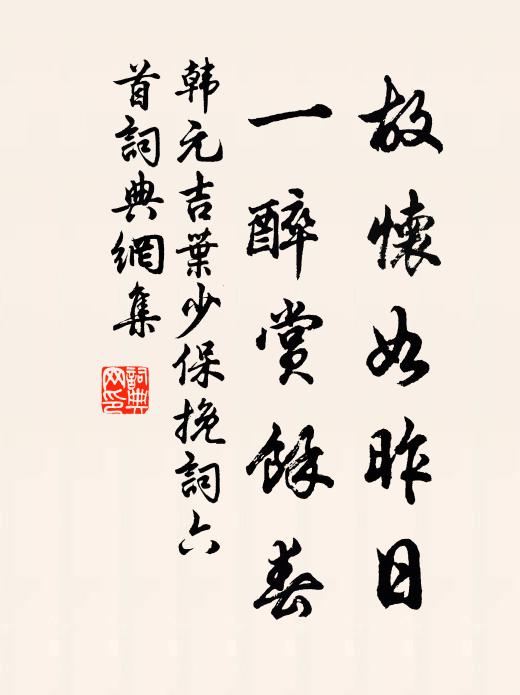 故懷如昨日
一醉賞餘春
韩元吉葉少保挽詞六
首詞典網集
詞典网印